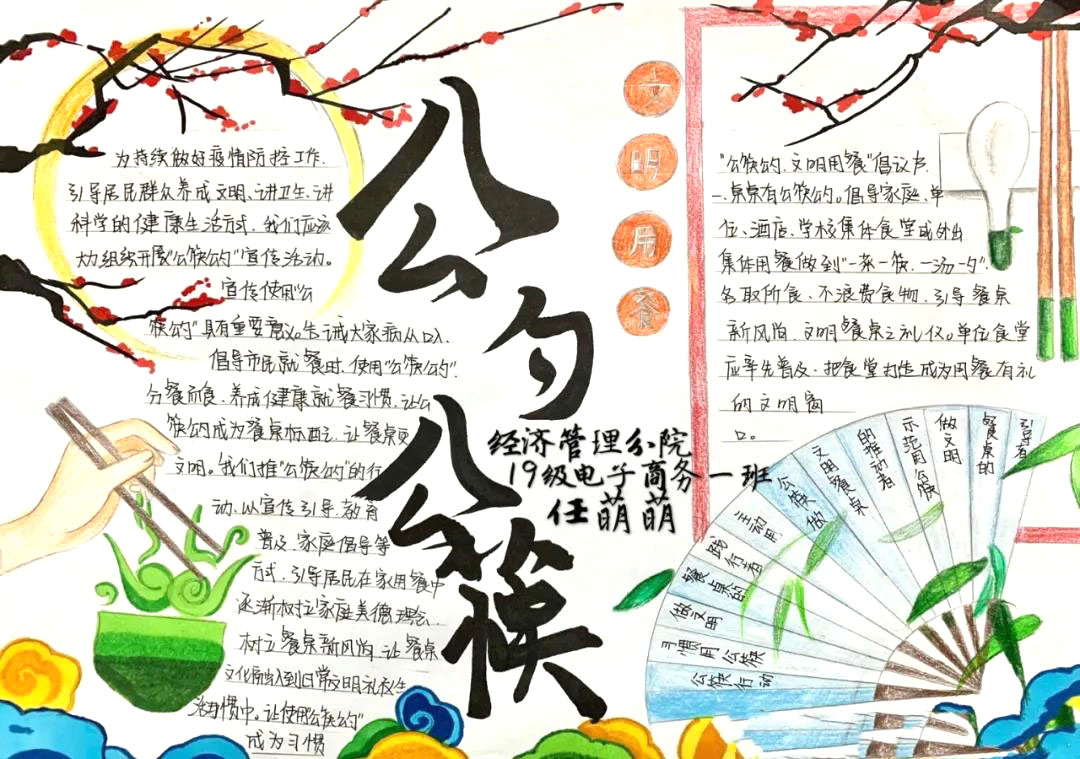 为持续做好疫情防控工作.
引导居民群众养成文明、讲卫生、讲
科学的健康生活方式.我们应该
大力组织开展"公筷公勺"宣传活动。
宣传使用"公
筷公勺"具有重要意义。告诫大家病从口入.
倡导市民就餐时.使用"公筷公勺".
分餐而食.养成健康就餐习惯.让公
筷公勺成为餐桌标配.让餐桌更
文明。我们推"公筷公勺"的行
动.以宣传引导.教育
普及.家庭倡导等
方式.引导居民在家用餐中
逐渐树立家庭美德理念.
树立餐桌新风尚.让餐桌
文化融入到日常文明礼仪生
活习惯中。让使用"公筷公勺"
成为习惯
公勺公筷
文明用餐
经济管理分院
19级电子商务一班
任萌萌
"公筷公勺.文明用餐"倡议书.
一.桌桌有公筷公勺。倡导家庭.单
位、酒店、学校集体食堂或外出
集体用餐做到"一菜一筷.一汤一勺".
各取所食.不浪费食物.引导餐桌
新风尚.文明餐桌之礼仪。单位食堂
应率先普及.把食堂打造成为用餐有礼
的文明窗
口。
公筷行动
习惯用公筷
做文明
餐桌的
践行者
主动用
公筷做
文明餐桌
的推动者
示范用公筷
做文明
餐桌的
引导者